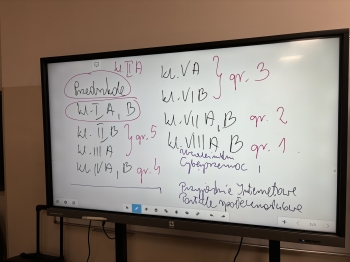 kl. II A
Przedszkole
kl. I A, B
kl. II B
kl. III A gr. 5
kl. IV A, B gr. 4
kl. V A
kl. VI B gr. 3
kl. VII A, B gr. 2
kl. VIII A, B gr. 1
Cyberprzemoc
Przyjaźnie Internetowe
Portale społecznościowe